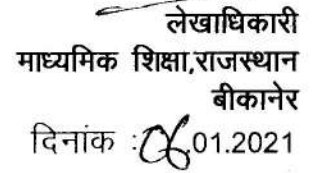 लेखाधिकारी
माध्यमिक शिक्षा,राजस्थान
बीकानेर
दिनांक :06.01.2021